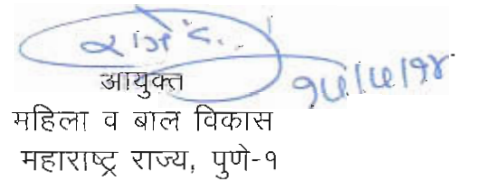 आयुक्त
महिला व बाल विकास
महाराष्ट्र राज्य, पुणे-१